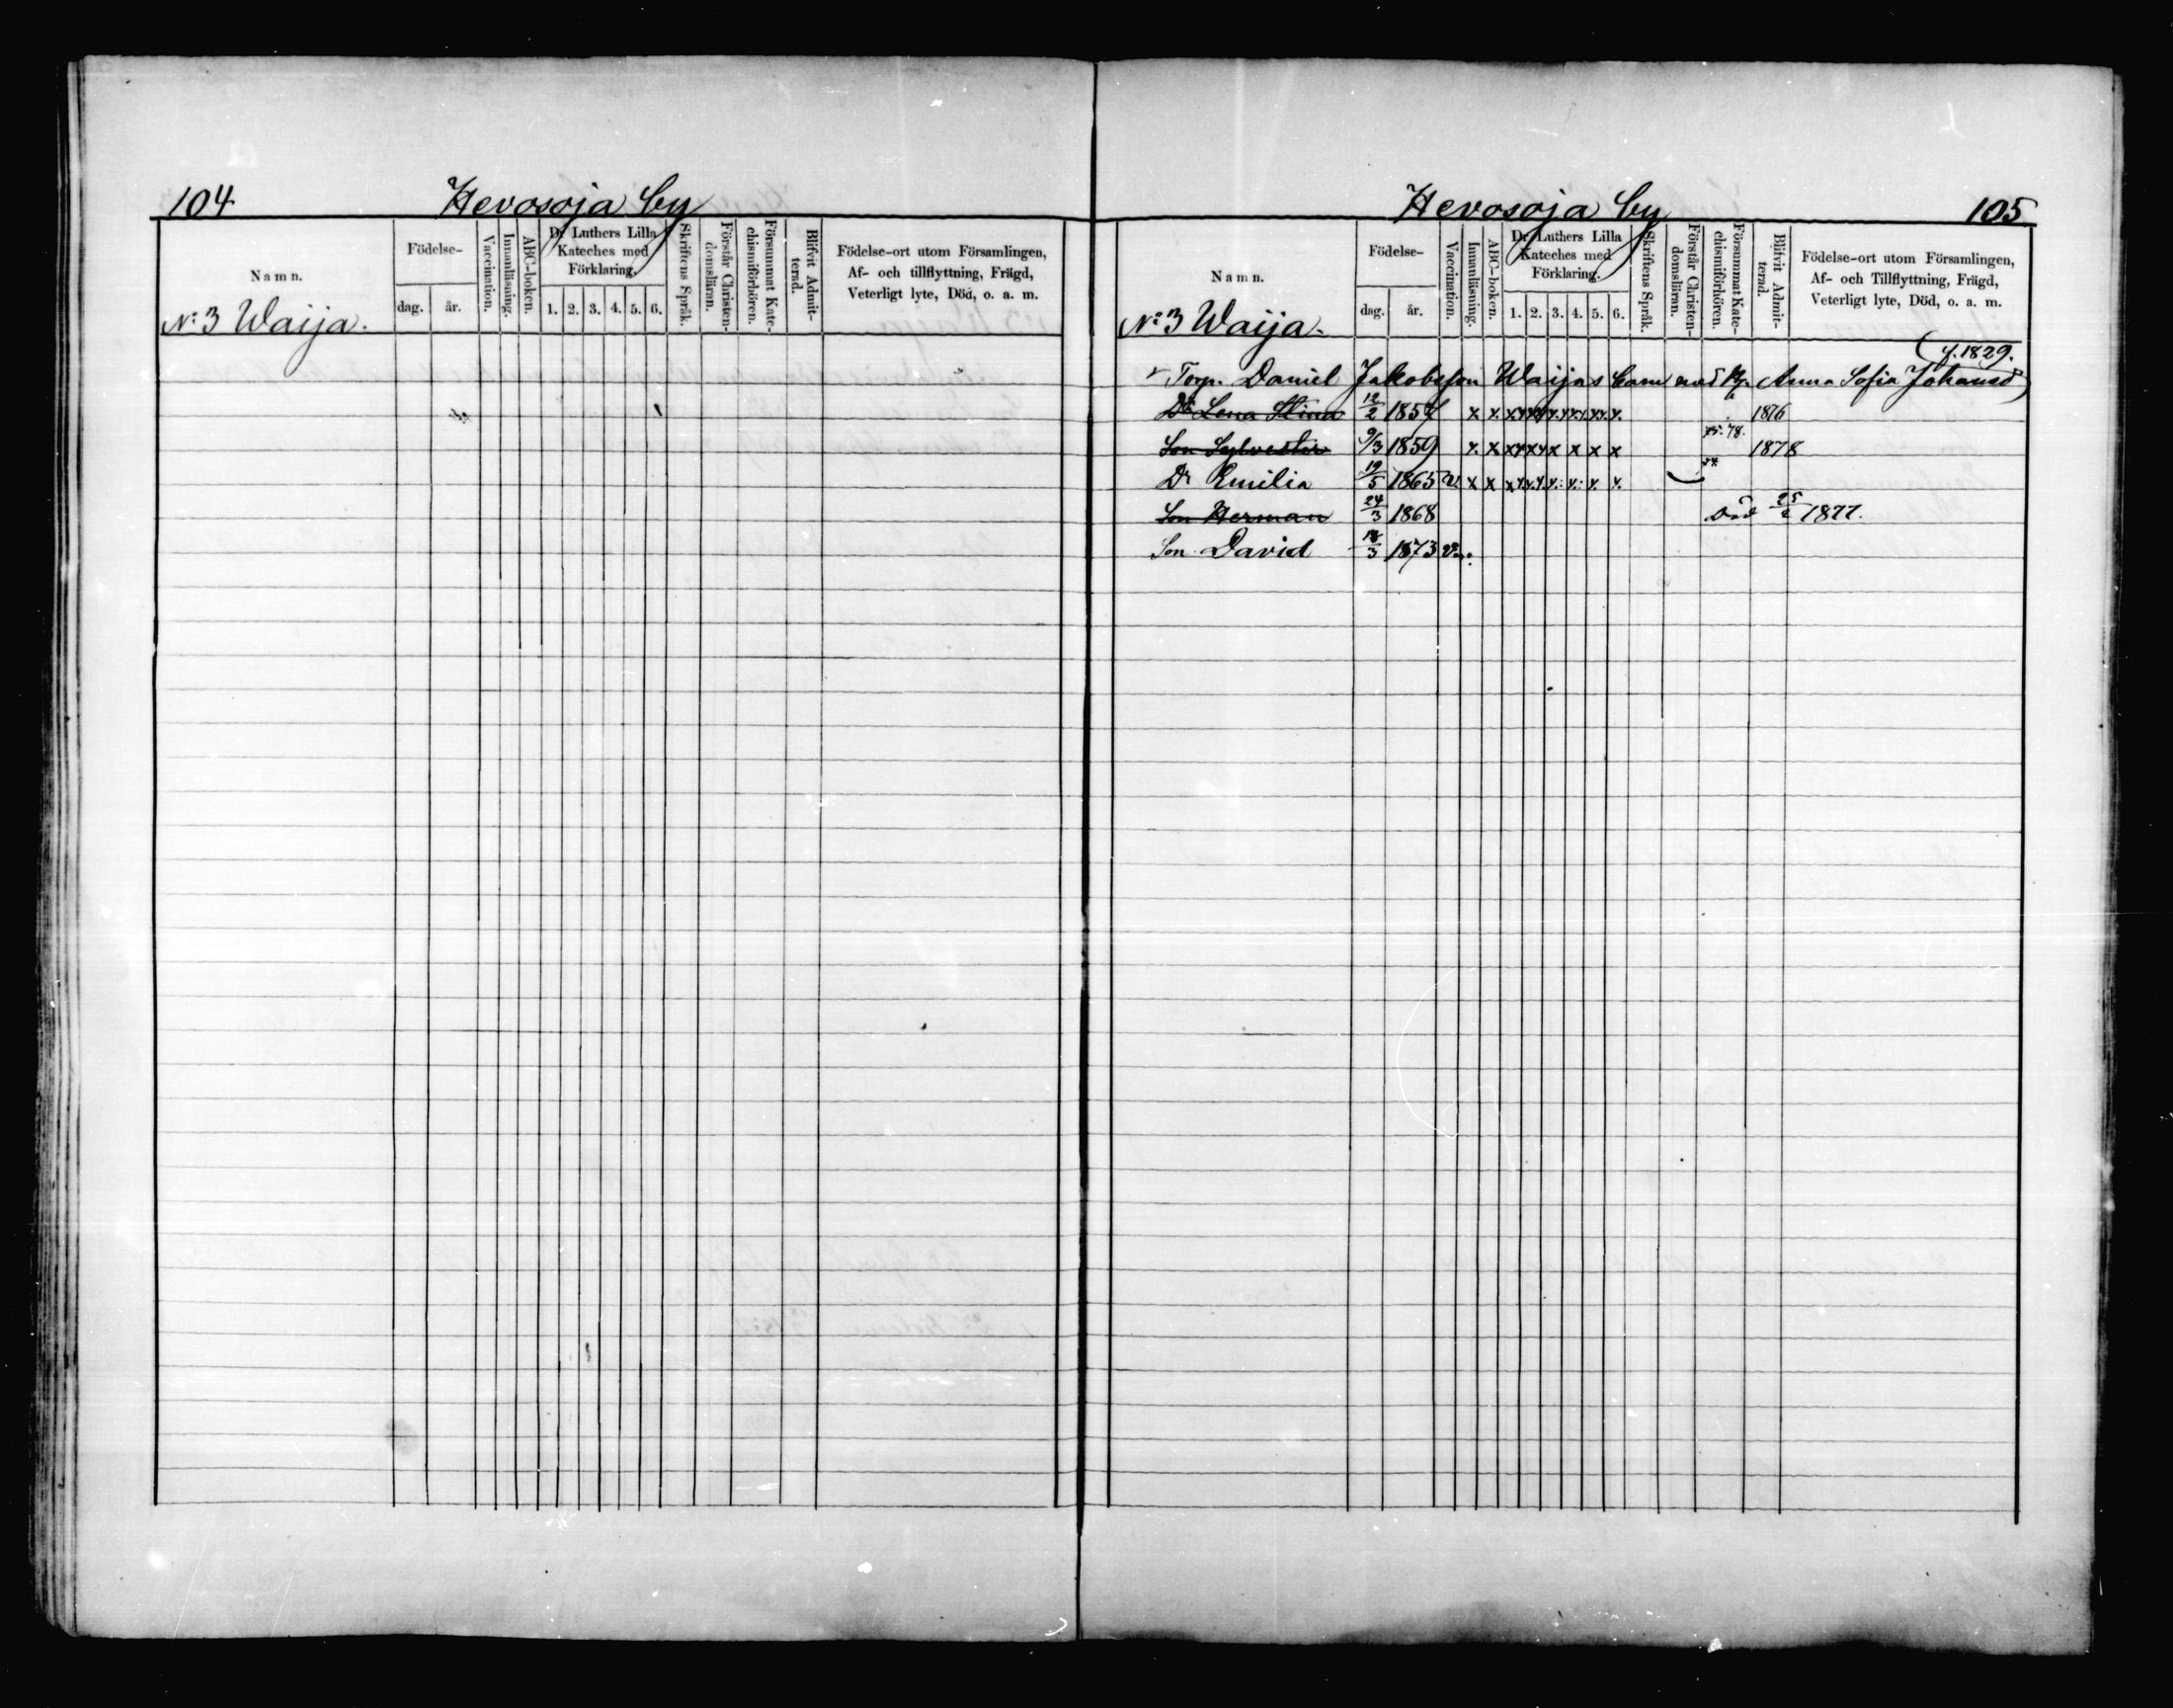 104
Hevosoja by
Namn.
Födelse-
dag.
år.
Vaccination.
Innanläsning.
ABC-boken.
Dr Luthers Lilla
Kateches med
Förklaring.
1. 2. 3. 4. 5. 6.
Skriftens Språk.
Förstår Christen-
domsläran.
Försummat Kate-
chismiförhören.
Blifvit Admit-
terad.
Födelse-ort utom Församlingen,
Af- och tillflyttning, Frägd,
Veterligt lyte, Död, o. a. m.
No: 3 Waija.
Hevosoja by
105
Namn.
Födelse-
dag.
år.
Vaccination.
Innanläsning.
ABC-boken.
Dr Luthers Lilla
Kateches med
Förklaring.
1. 2. 3. 4. 5. 6.
Skriftens Språk.
Förstår Christen-
domsläran.
Försummat Kate-
chismiförhören.
Blifvit Admit-
terad.
Födelse-ort utom Församlingen,
Af- och Tillflyttning, Frägd,
Veterligt lyte, Död, o. a. m.
No: 3 Waija.
(f. 1829.
Torp. Daniel Jakobsson Waijas barn med Anna Sofia Johansd)
Dr Lena Stina 12/2 1857 x x. 1876
Son Sylvester 9/3 1859 x. x x x x x 78. 1878
Dr Emilia 19/5 1865 v. x x
Son Herman 24/3 1868 Död 1877.
Son David 18/3 1873 v.